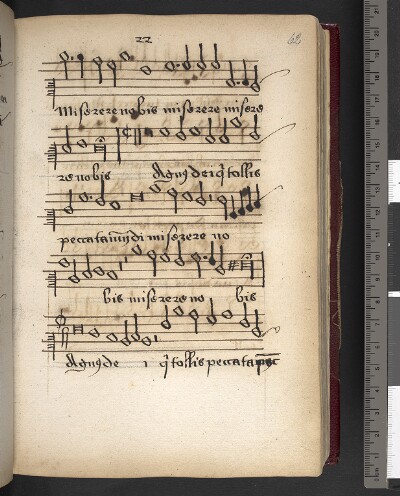 22
Miserere nobis miserere misere
re nobis Agnus dei q tollis
peccata mundi miserere no
bis miserere no bis
Agnus de i q tollis peccata